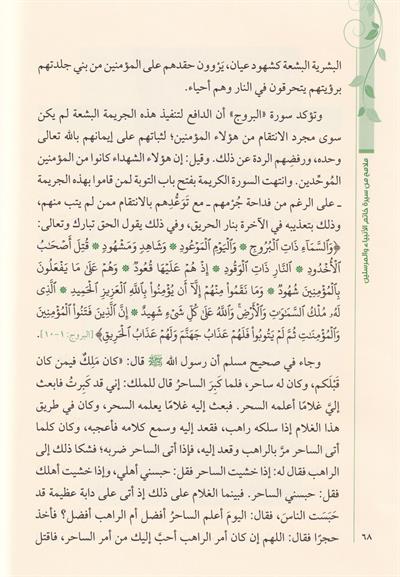 البشرية البشعة كشهود عيان، يَرْوون حقدهم على المؤمنين من بني جلدتهم
برؤيتهم يتحرقون في النار وهم أحياء.
وتؤكد سورة «البروج» أن الدافع لتنفيذ هذه الجريمة البشعة لم يكن
سوى مجرد الانتقام من هؤلاء المؤمنين؛ لثباتهم على إيمانهم بالله تعالى
وحده، ورفضِهم الردة عن ذلك. وقيل: إن هؤلاء الشهداء كانوا من المؤمنين
المُوحِّدين. وانتهت السورة الكريمة بفتح باب التوبة لمن قاموا بهذه الجريمة
ـ على الرغم من فداحة جُرْمهم ـ مع تَوَعُّدِهم بالانتقام ممن لم يتب منهم،
وذلك بتعذيبه في الآخرة بنار الحريق، وفي ذلك يقول الحق تبارك وتعالى:
﴿وَٱلسَّمَآءِ ذَاتِ ٱلْبُرُوجِ * وَٱلْيَوْمِ ٱلْمَوْعُودِ * وَشَاهِدٍ وَمَشْهُودٍ * قُتِلَ أَصْحَٰبُ
ٱلْأُخْدُودِ * ٱلنَّارِ ذَاتِ ٱلْوَقُودِ * إِذْ هُمْ عَلَيْهَا قُعُودٌ * وَهُمْ عَلَىٰ مَا يَفْعَلُونَ
بِٱلْمُؤْمِنِينَ شُهُودٌ * وَمَا نَقَمُوا۟ مِنْهُمْ إِلَّآ أَن يُؤْمِنُوا۟ بِٱللَّهِ ٱلْعَزِيزِ ٱلْحَمِيدِ * ٱلَّذِى
لَهُۥ مُلْكُ ٱلسَّمَٰوَٰتِ وَٱلْأَرْضِ وَٱللَّهُ عَلَىٰ كُلِّ شَىْءٍ شَهِيدٌ * إِنَّ ٱلَّذِينَ فَتَنُوا۟ ٱلْمُؤْمِنِينَ
وَٱلْمُؤْمِنَٰتِ ثُمَّ لَمْ يَتُوبُوا۟ فَلَهُمْ عَذَابُ جَهَنَّمَ وَلَهُمْ عَذَابُ ٱلْحَرِيقِ﴾ [البروج: ١-١٠].
وجاء في صحيح مسلم أن رسول الله ﷺ قال: «كان مَلِكٌ فيمن كان
قَبْلَكم، وكان له ساحر، فلما كَبِرَ الساحرُ قال للملك: إني قد كَبِرتُ فابعث
إليَّ غلامًا أعلمه السحر. فبعث إليه غلامًا يعلمه السحر، وكان في طريق
هذا الغلام إذا سلكه راهب، فقعد إليه وسمع كلامه فأعجبه، وكان كلما
أتى الساحر مرَّ بالراهب وقعد إليه، فإذا أتى الساحر ضربه؛ فشكا ذلك إلى
الراهب فقال له: إذا خشيت الساحر فقل: حبسني أهلي، وإذا خشيت أهلك
فقل: حبسني الساحر. فبينما الغلام على ذلك إذ أتى على دابة عظيمة قد
حَبَسَت الناسَ، فقال: اليومَ أعلم الساحرُ أفضل أم الراهب أفضل؟ فأخذ
حجرًا فقال: اللهم إن كان أمر الراهب أحبَّ إليك من أمر الساحر، فاقتل
ملامح من سيرة خاتم الأنبياء والمرسلين
٦٨